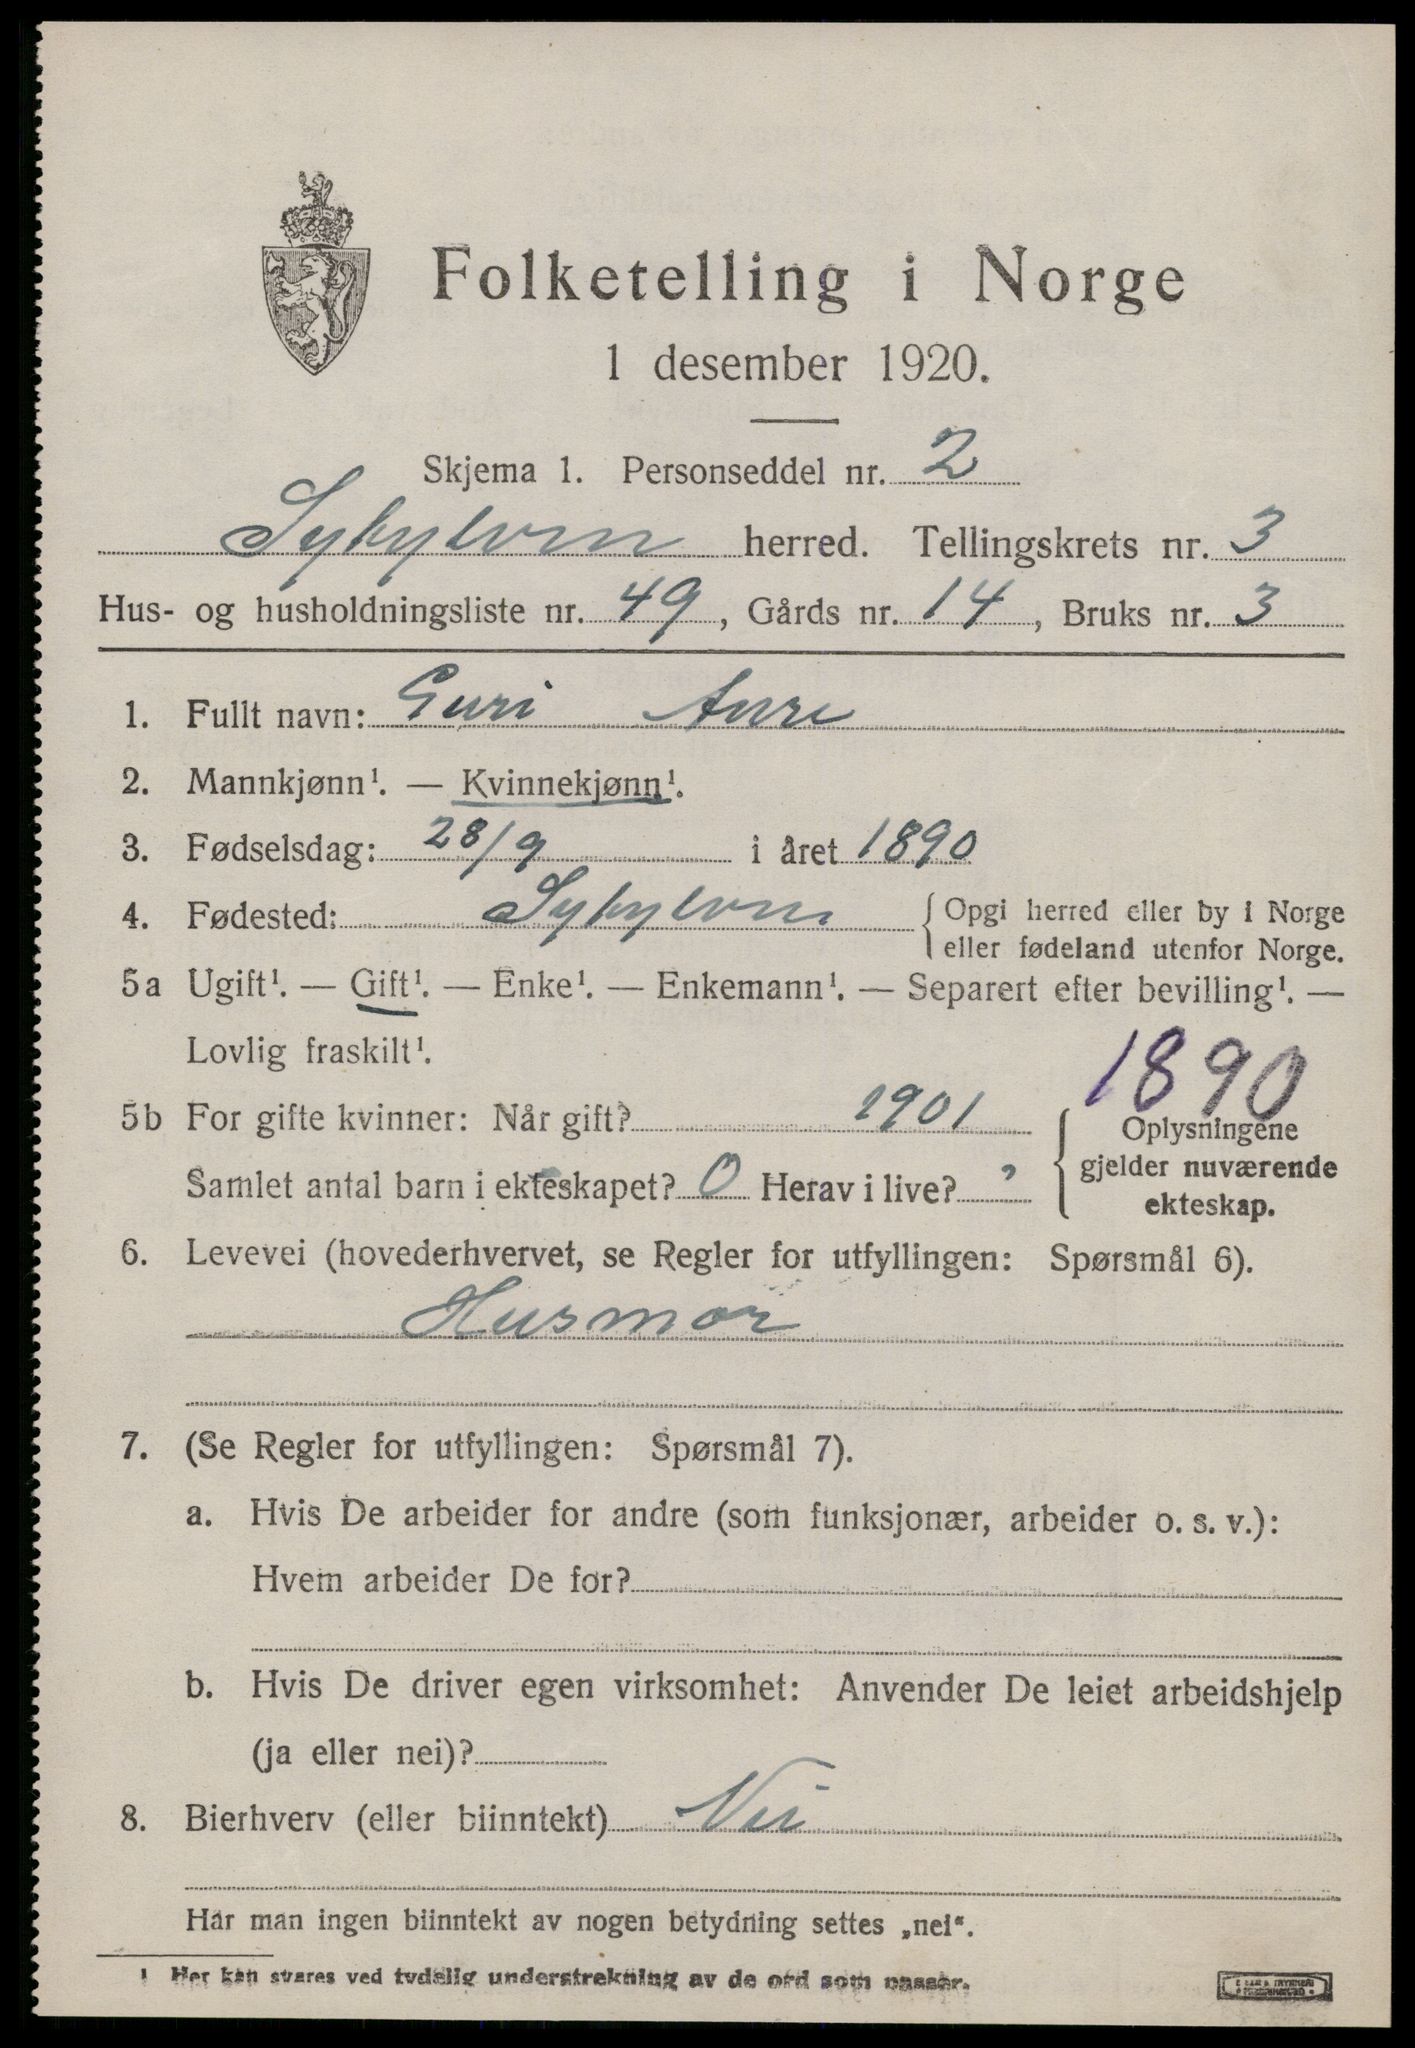 Folketelling i Norge
1 desember 1920.
Skjema 1. Personseddel nr. 2
Sykylven herred. Tellingskrets nr. 3
Hus- og husholdningsliste nr. 49, Gårds nr. 14, Bruks nr. 3
1. Fullt navn: Guri Aure
2. Mannkjønn¹. — Kvinnekjønn¹.
3. Fødselsdag: 28/9 i året 1890
4. Fødested: Sykylven { Opgi herred eller by i Norge
eller fødeland utenfor Norge.
5a Ugift¹. — Gift¹. — Enke¹. — Enkemann¹. — Separert efter bevilling¹. —
Lovlig fraskilt¹.
1890
5b For gifte kvinner: Når gift? 1901
Samlet antal barn i ekteskapet? 0 Herav i live? "
{ Oplysningene
gjelder nuværende
ekteskap.
6. Levevei (hovederhvervet, se Regler for utfyllingen: Spørsmål 6).
Husmor
7. (Se Regler for utfyllingen: Spørsmål 7).
a. Hvis De arbeider for andre (som funksjonær, arbeider o. s. v.):
Hvem arbeider De for?
b. Hvis De driver egen virksomhet: Anvender De leiet arbeidshjelp
(ja eller nei)?
8. Bierhverv (eller biinntekt) Nei
Har man ingen biinntekt av nogen betydning settes „nei“.
1 Her kan svares ved tydelig understrekning av de ord som passer.